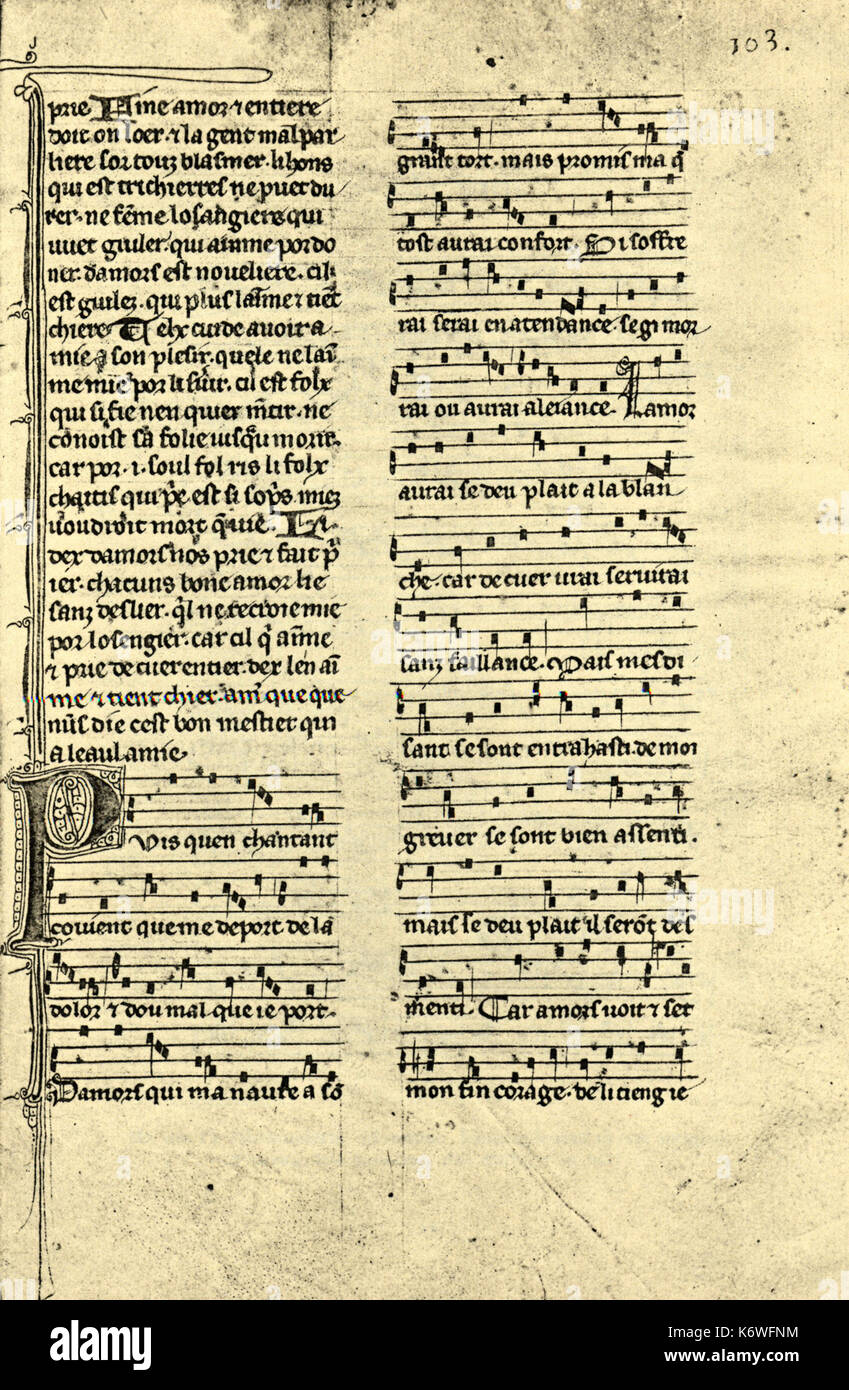 103.
prie. Fine amor ⁊ entiere
doit on loer. ⁊ la gent mal par
liere sor touz blasmer. li hons
qui est trichierres ne puet du
rer. ne fēme losangiere qui
vuet guiler. qui aimme por do
ner. damors est noueliere. cil
est guilez. qui plus laīme ⁊ tient
chiere. Telx cuide auoir a
mie a son plesir. quele ne laī
me mie por li seruir. cil est folx
qui si fie nen quier mētir. ne
cōnoist sa folie iusqu morir.
car por .i. soul fol ris li folx
chaitis qui est si sopris miez
uoudroit mort q̄ uie. Li
dex damors nos prie ⁊ fait
ier. chacuns bone amor lie
sanz deslier. ql ne recroie mie
por losengier. car cil q̄ aīme
⁊ prie de cuer entier. dex len aī
me ⁊ tient chier. ainz que que
nus die cest bon mestier qui
a leaul amie.
PUis quen chantant
couient que me deport. de la
dolor ⁊ dou mal que ie port.
Damors qui ma naure a sō
grant tort. mais promis ma q̄
tost aurai confort. Si soffre
rai serai en atendance. se gi mor
rai ou aurai aleiance. Lamor
aurai se deu plait a la blan
che. car de cuer urai seruirai
sanz faillance. Mais mesdi
sant se sont entrahasti. de moi
greuer se sont bien assenti.
mais se deu plait il serōt des
menti. Car amors uoit ⁊ set
mon fin corage. de li tieng ie
alamy stock photo
alamy
Image ID: K6WFNM
www.alamy.com